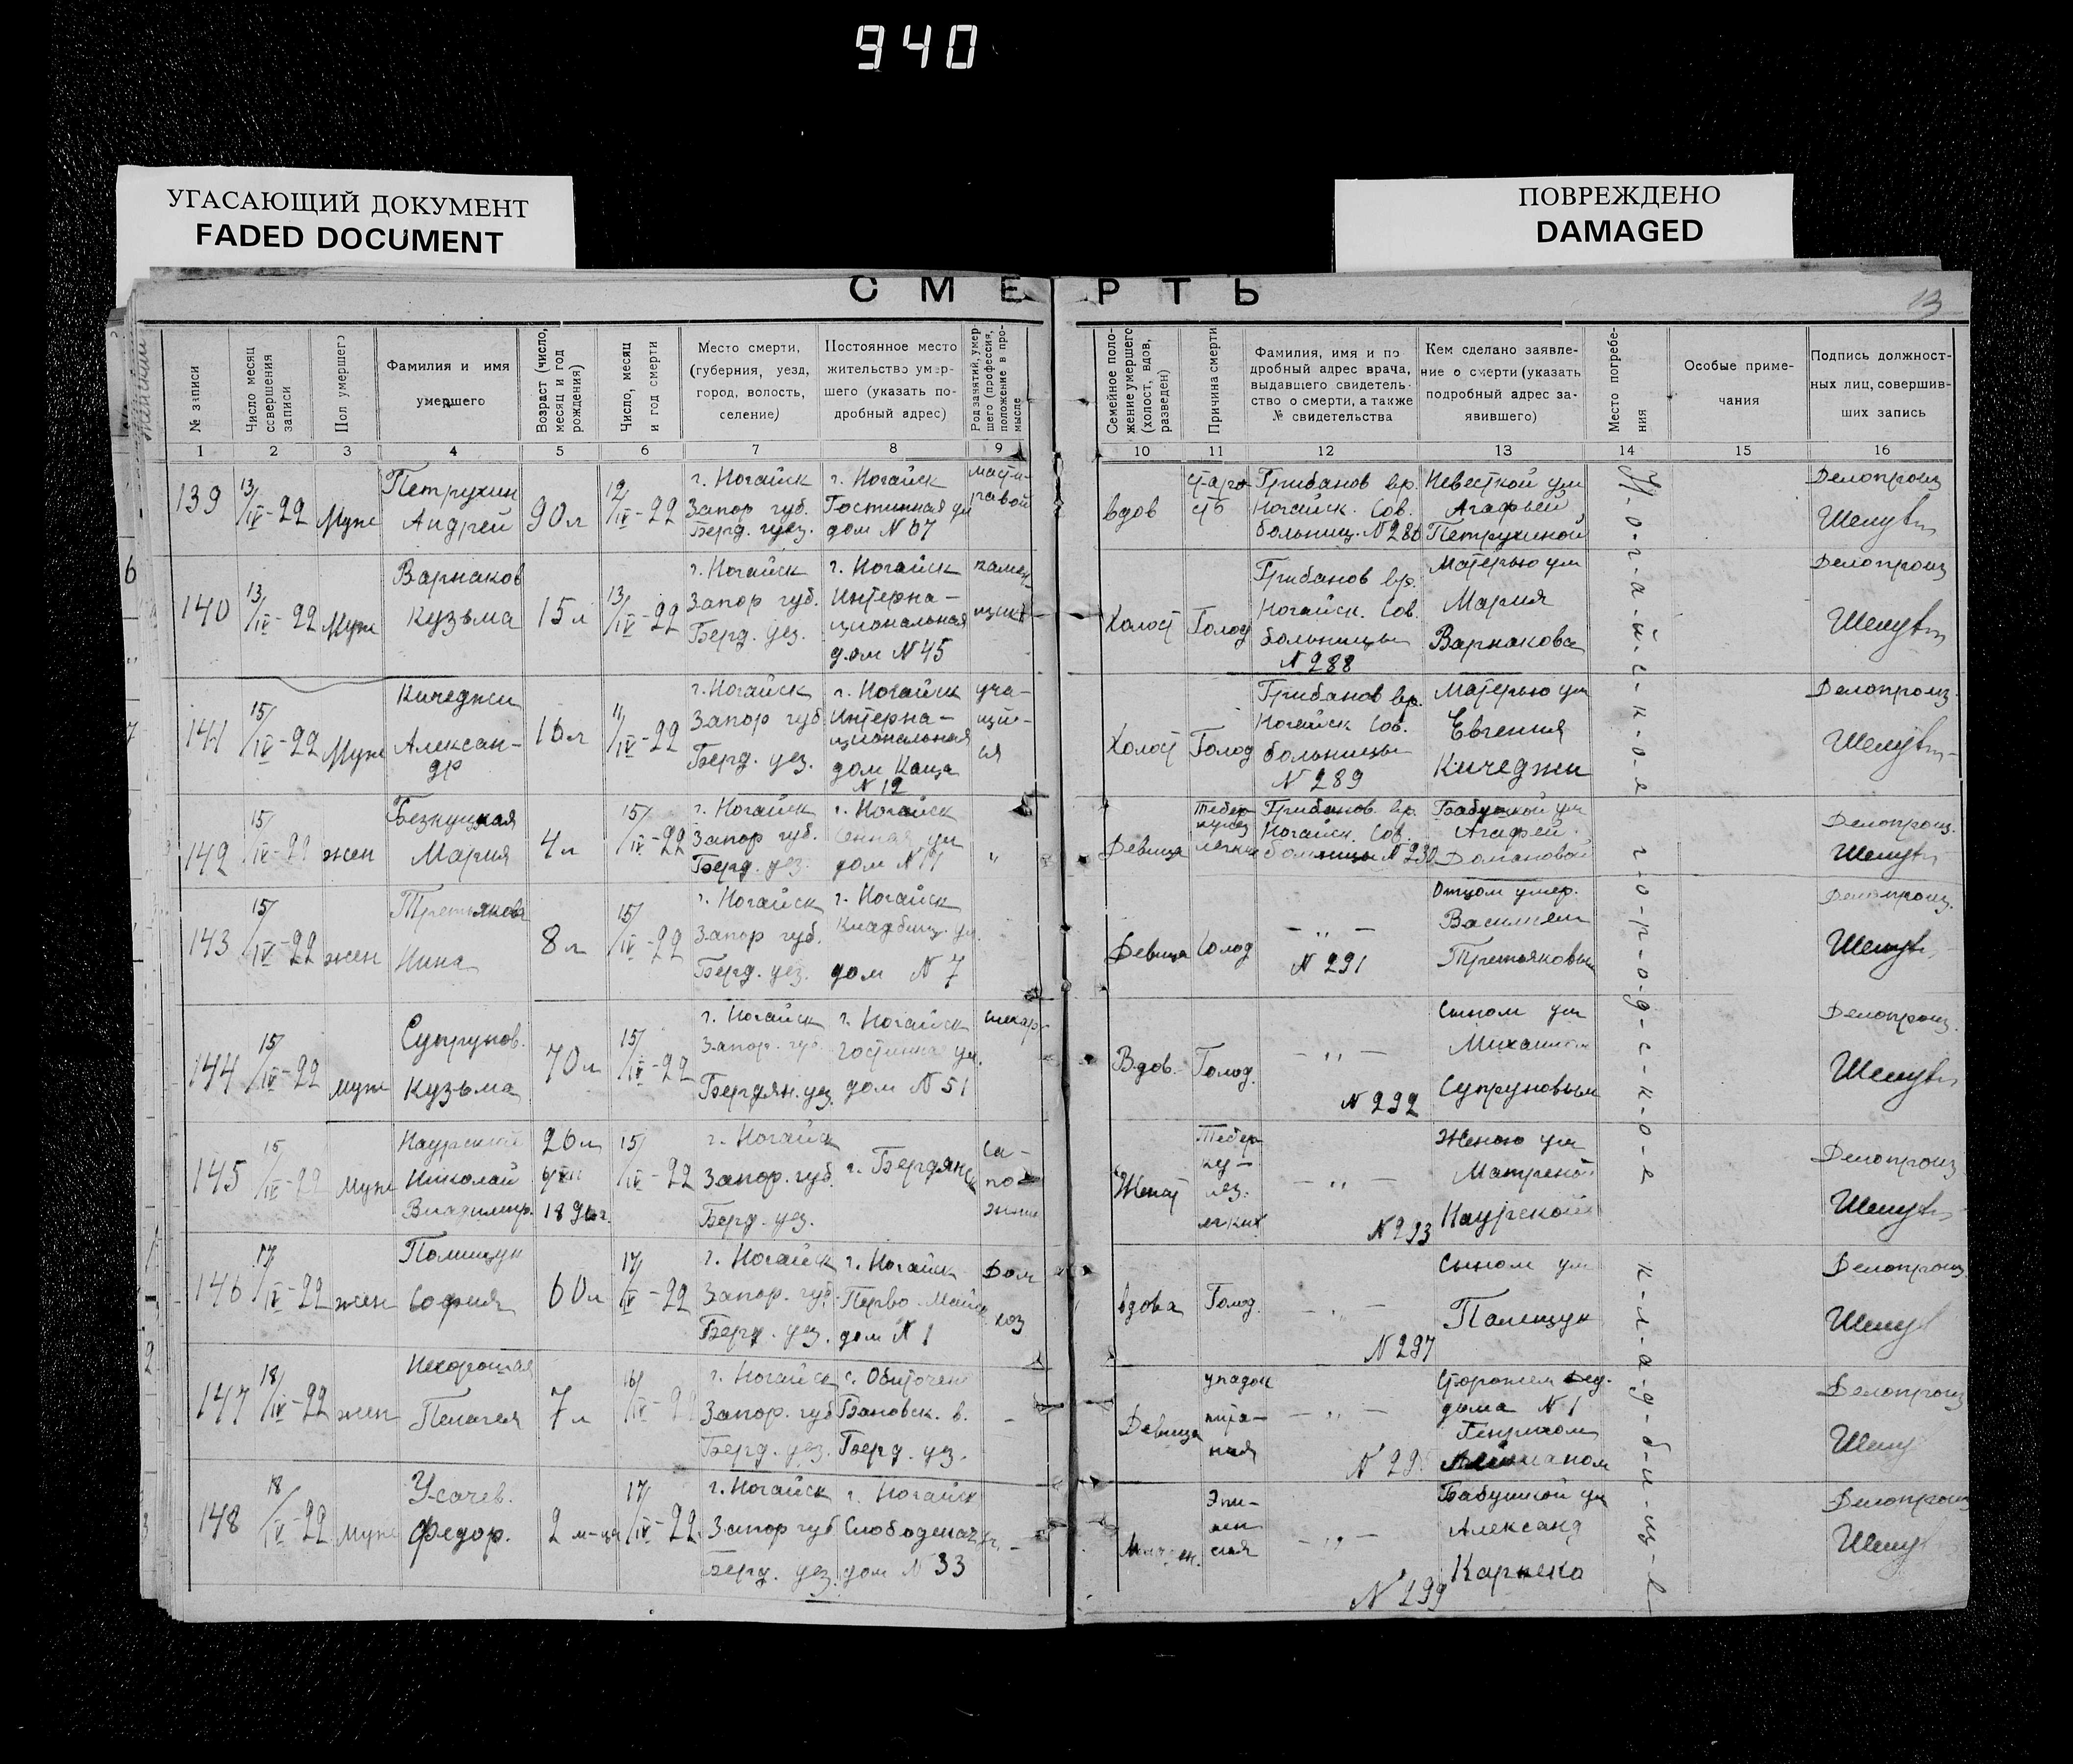 940
УГАСАЮЩИЙ ДОКУМЕНТ
FADED DOCUMENT
ПОВРЕЖДЕНО
DAMAGED
СМЕРТЬ
13
№ записи
Число месяц совершения записи
Пол умершего
Фамилия и имя
умершего
Возраст (число, месяц и год рождения)
Число, месяц и год смерти
Место смерти,
(губерния, уезд,
город, волость,
селение)
Постоянное место
жительство умер-
шего (указать по-
дробный адрес)
Род занятий, умер-
шего (профессия,
положение в про-
мысле
Семейное поло-
жение умершего
(холост, вдов,
разведен)
Причина смерти
Фамилия, имя и по
дробный адрес врача,
выдавшего свидетель-
ство о смерти, а также
№ свидетельства
Кем сделано заявле-
ние о смерти (указать
подробный адрес за-
явившего)
Место погребе-
ния
Особые приме-
чания
Подпись должност-
ных лиц, совершив-
ших запись
1 2 3 4 5 6 7 8 9 10 11 12 13 14 15 16
139
13/IV-22
Муж
Петрухин
Андрей
90 л
12/IV-22
г. Ногайск
Запор губ.
Берд. уез.
г. Ногайск
Гостинная ул
дом N 67
вдов
старо
сть
Грибанов вр.
Ногайск. Сов.
больниц. N 286
Невесткой ум
Агафьей
Петрухиной
Делопроиз
140
13/IV-22
Муж
Варнаков
Кузьма
15 л
13/IV-22
г. Ногайск
Запор губ.
Берд. уез.
г. Ногайск
Интерна-
циональная
дом N 45
камен
щик
Холост
Голод
Грибанов вр.
Ногайск. Сов.
больницы
N 288
Матерью ум
Мария
Варнакова
Делопроиз
141
15/IV-22
Муж
Кичеджи
Алексан-
др
16 л
11/IV-22
г. Ногайск
Запор губ
Берд. уез.
г. Ногайск
Интерна-
циональная
дом Каца
N 12
уча-
щий-
ся
Холост
Голод
Грибанов вр.
Ногайск Сов.
больницы
N 289
Матерью ум
Евгения
Кичеджи
Делопроиз.
142
15/IV-22
жен
Мария
4 л
15/IV-22
г. Ногайск
Запор губ.
Берд. уез.
г. Ногайск
Сенная ул
дом N
"
Девица
легких
Грибанов. вр.
Ногайск. Сов.
больницы N 290
Бабушкой ум
Агафьей
Домановой
Делопроиз.
143
15/IV-22
жен
Третьякова
Нина
8 л
15/IV-22
г. Ногайск
Запор губ.
Берд. уез.
г. Ногайск
Кладбищ. ул.
дом N 7
Девица
Голод
- " -
N 291
Отцом умер.
Василием
Третьяковым
Делопроиз.
144
15/IV-22
Муж
Супрунов.
Кузьма
70 л
15/IV-22
г. Ногайск
Запор. губ.
Бердян. уез.
г. Ногайск
Гостинная ул.
дом N 51
Вдов.
Голод.
- " -
N 292
Сыном ум
Михаилом
Супруновым
Делопроиз.
145
15/IV-22
Муж
Николай
Владимир.
26 л
15/IV-22
г. Ногайск
Запор. губ.
Берд. уез.
г. Бердянск
Са-
по
Женат
- " -
N 293
Женою ум
Матреной
Наурской
Делопроиз
146
17/IV-22
жен
Полищук
София
60 л
17/IV-22
г. Ногайск
Запор. губ.
Берд. уез.
г. Ногайск
Перво-Майск
дом N 1
Дом
хоз
вдова
Голод.
- " -
N 297
Сыном ум
Полищук
Делопроиз.
147
18/IV-22
жен
Нехорошая
Пелагея
7 л
16/IV-22
г. Ногайск
Запор. губ
Берд. уез.
с. Обиточен
Бановск. в.
Берд. уз.
-
Девица
упадок
пита-
ния
- " -
Сторожем дет.
дома N 1
Генрихом
Делопроиз
148
18/IV-22
Муж
Усачев.
Федор.
2 м-ца
17/IV-22
г. Ногайск
Запор губ
Берд. уез.
г. Ногайск
дом N 33
-
Эпи-
леп
сия
- " -
N 299
Бабушкой ум
Александ
Делопроиз
г-о-р-о-д-с-к-о-е
к-л-а-д-б-и-щ-е